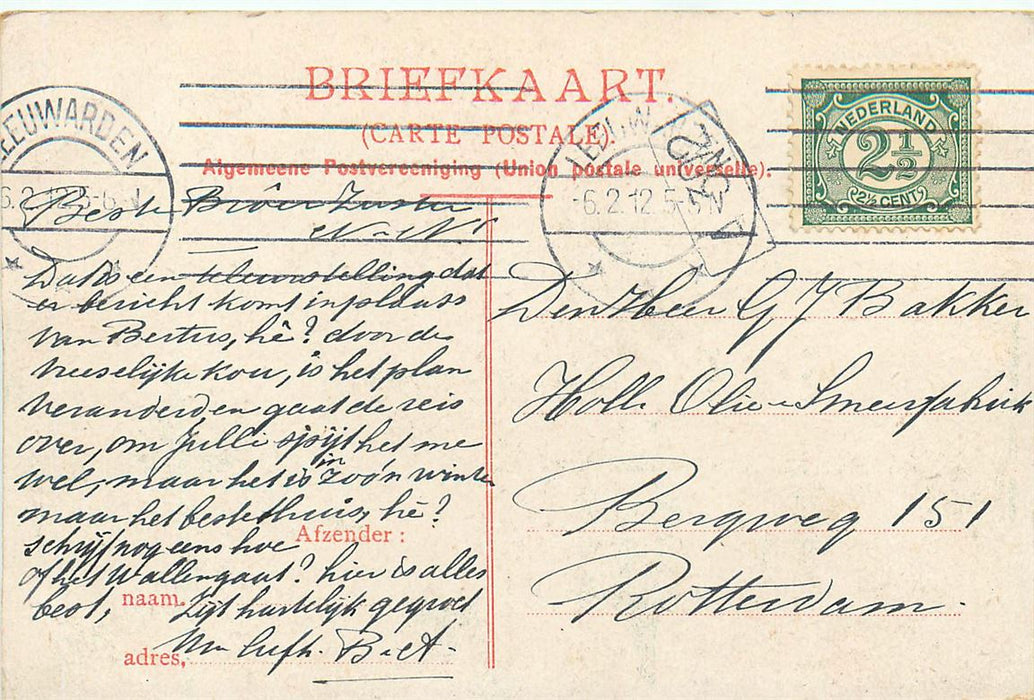 BRIEFKAART.
(CARTE POSTALE).
Algemeene Postvereeniging (Union postale universelle).
LEEUWARDEN
6.2.12 5-6 N
LEEUW
-6.2.12 5-6 N
NEDERLAND
2½
(2½ CENT)
Beste Broer Zuster
N-N!
Dat is een teleurstelling dat
er bericht komt in plaats
van Bertus, hê? door de
vreeselijke kou, is het plan
veranderd en gaat de reis
over, om Julli spijt het me
wel, maar het is in zóó'n winter
maar het beste thuis, hê?
schrijf nog eens hoe
of het Wallen gaat? hier is alles
best,
Zijt hartelijk gegroet
B et A.
Afzender:
naam.
adres,
Den Heer G J Bakker
Holl. Olie - Smeerfabriek
Bergweg 151
Rotterdam.